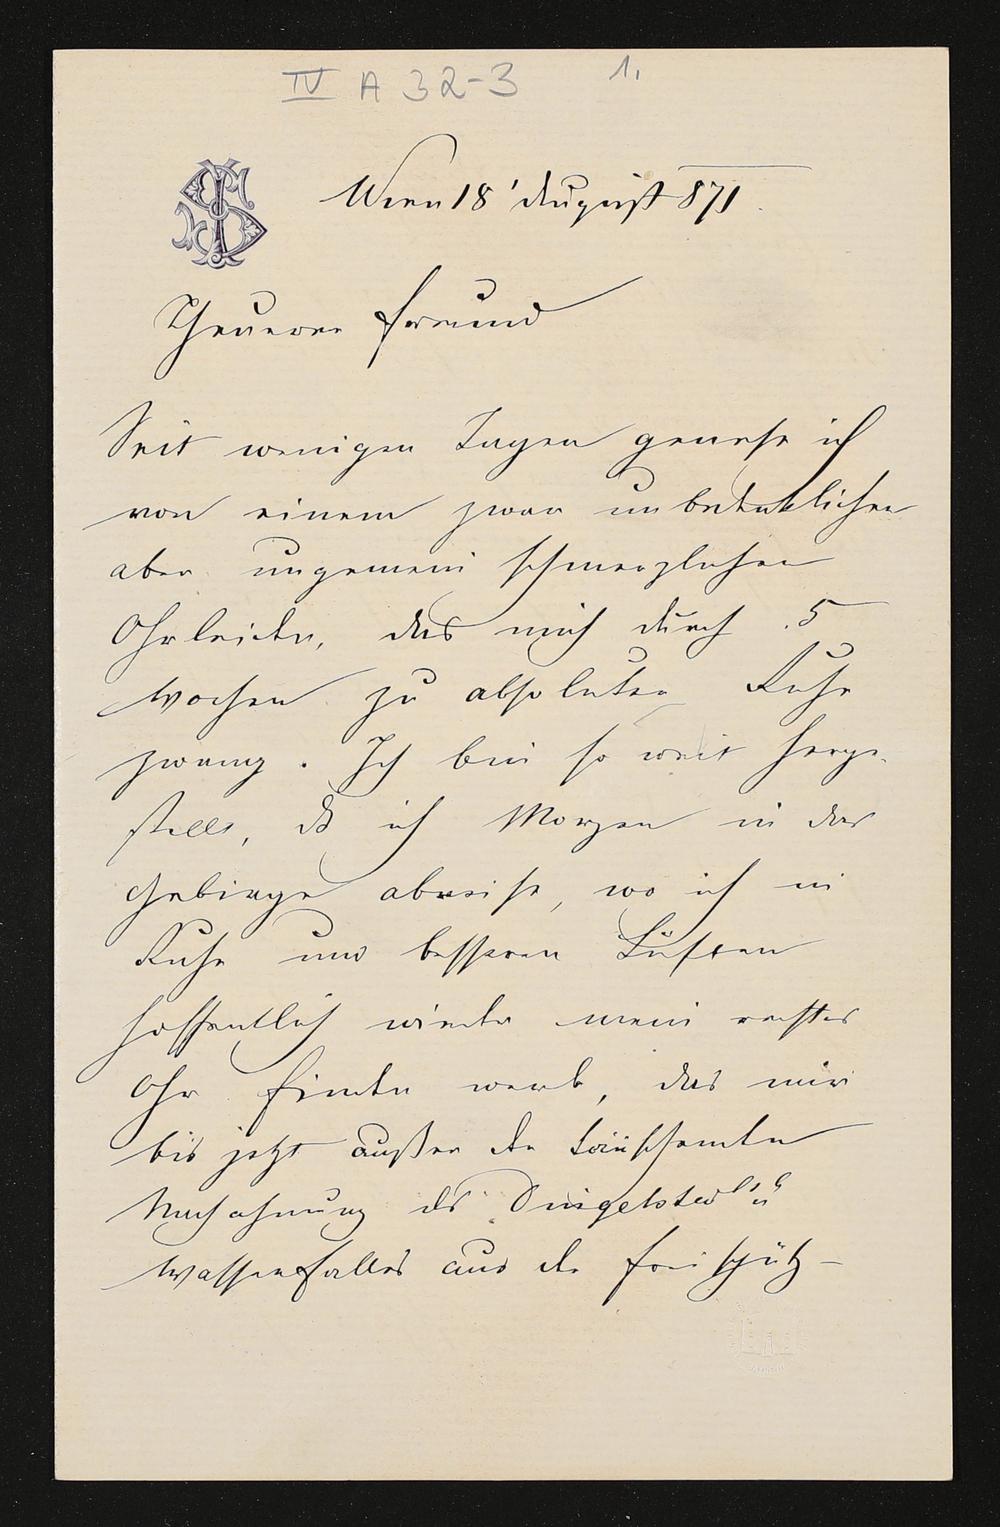 IV A 32-3 1.
Wien 18' August 871
Theuerer Freund
Seit wenigen Tagen genese ich
von einem zwar unbedenklichen
aber ungemein schmerzlichen
Ohrleiden, das mich durch 5
Wochen zu absoluter Ruhe
zwang. Ich bin so weit herge-
stellt, dß ich Morgen in das
Gebirge abreise, wo ich in
Ruhe und besseren Lüften
hoffentlich wieder mein rechtes
Ohr finden werde, das mir
bis jetzt außer der täuschenden
Nachahmung des Dingelstedt'
Wasserfalles aus der Freischütz-